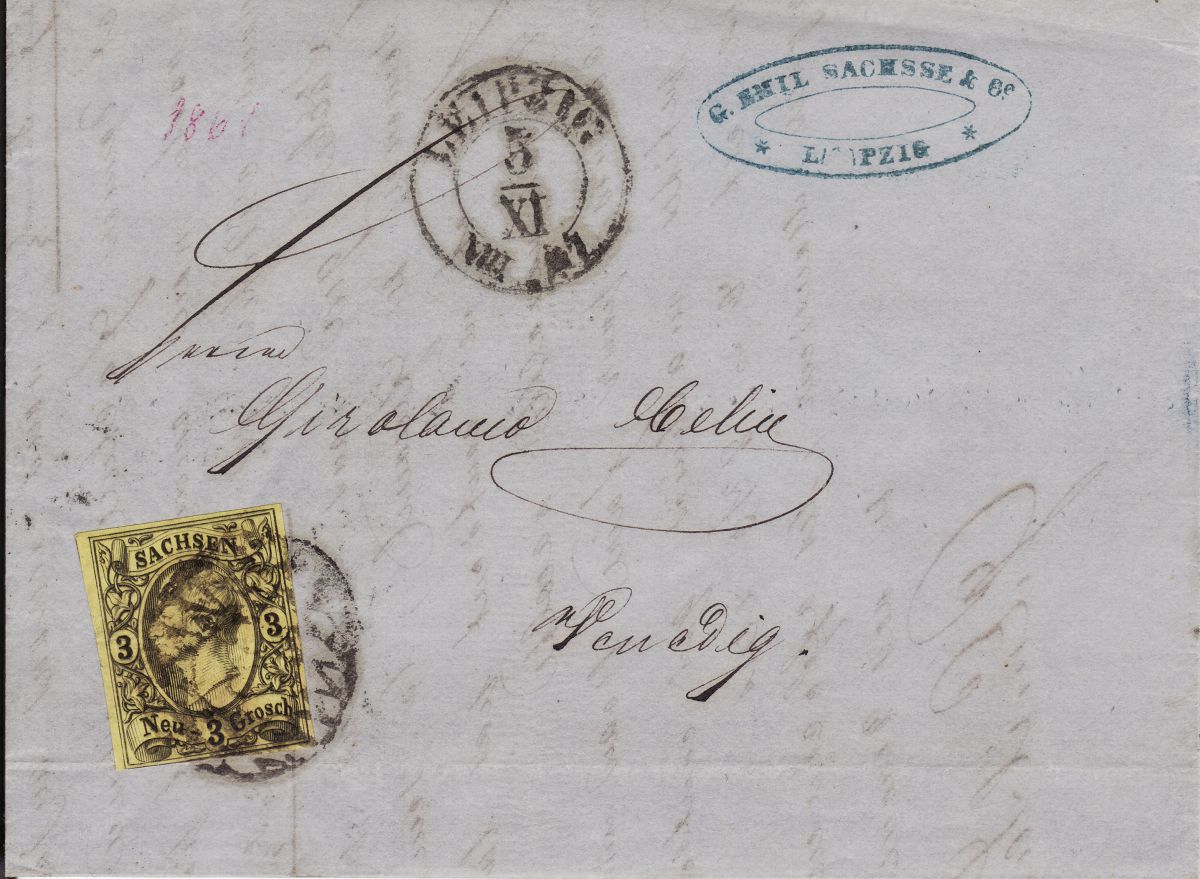 1861
LEIPZIG
5
XI
VIII
G. EMIL SACHSSE & Co.
* LEIPZIG *
Girolamo
Venedig.
SACHSEN
3 3
Neu- 3 Grosch